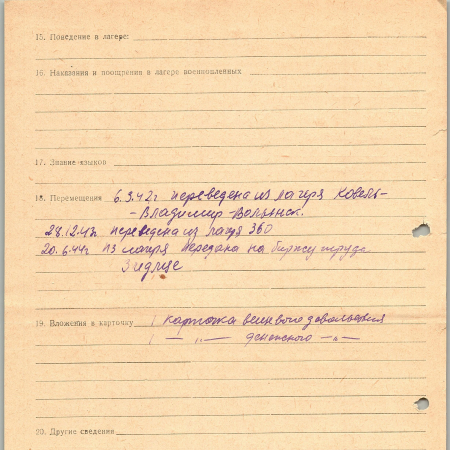 15. Поведение в лагере:
16. Наказания и поощрения в лагере военнопленных
17. Знание языков
18. Перемещения 6.3.42г переведена из лагеря Ковель-
- Владимир Волынск.
28.12.42г переведена из лагря 360
20.6.44г из лагря передана на биржу труда
19. Вложения в карточку 1 карточка вещевого довольствия
1 — „ — денежного — „ —
20. Другие сведения